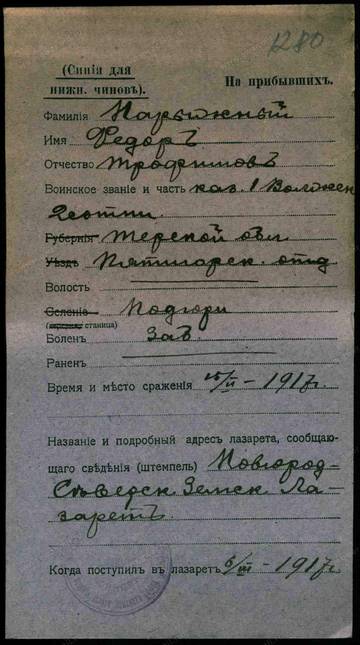 1280
(Синія для
нижн. чиновъ).
На прибывшихъ.
Фамилія Нарыжный
Имя Федоръ
Отчество Трофимовъ
Воинское званіе и часть каз. 1 Волжск
Сотни
Губернія Терской обл
Уѣздъ Пятигорск. отд
Волость
Селеніе Подгорн
станица)
Боленъ Заб.
Раненъ
Время и мѣсто сраженія 15/II – 1917 г.
Названіе и подробный адресъ лазарета, сообщаю-
щаго свѣдѣнія (штемпель) Новгород-
Сѣверск. Земск. Ла-
заретъ.
Когда поступилъ въ лазаретъ 5/III – 1917 г.